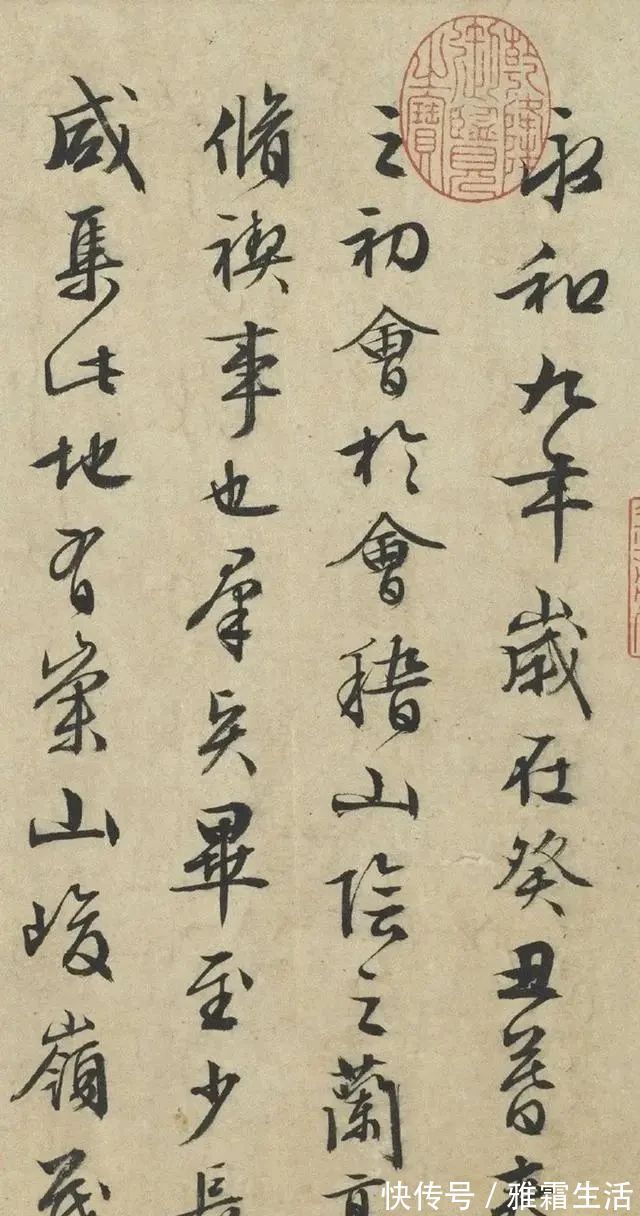 永和九年歲在癸丑暮春
之初會於會稽山陰之蘭亭
脩禊事也羣賢畢至少長
咸集此地有崇山峻嶺茂
乾隆御覽之寶
快传号/雅霜生活